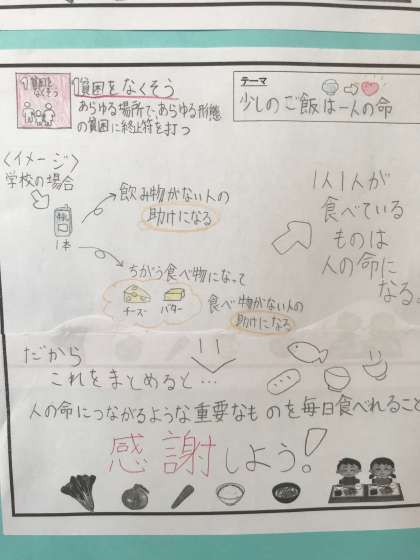 1 貧困を
なくそう
1貧困をなくそう
あらゆる場所で、あらゆる形態
の貧困に終止符を打つ
テーマ
少しのご飯は一人の命
〈イメージ〉
学校の場合
1本
飲み物がない人の
助けになる
ちがう食べ物になって
チーズ
バター
食べ物がない人の
助けになる
1人1人が
食べている
ものは
人の命に
なる。
だから
これをまとめると…
人の命につながるような重要なものを毎日食べれること
感謝しよう!